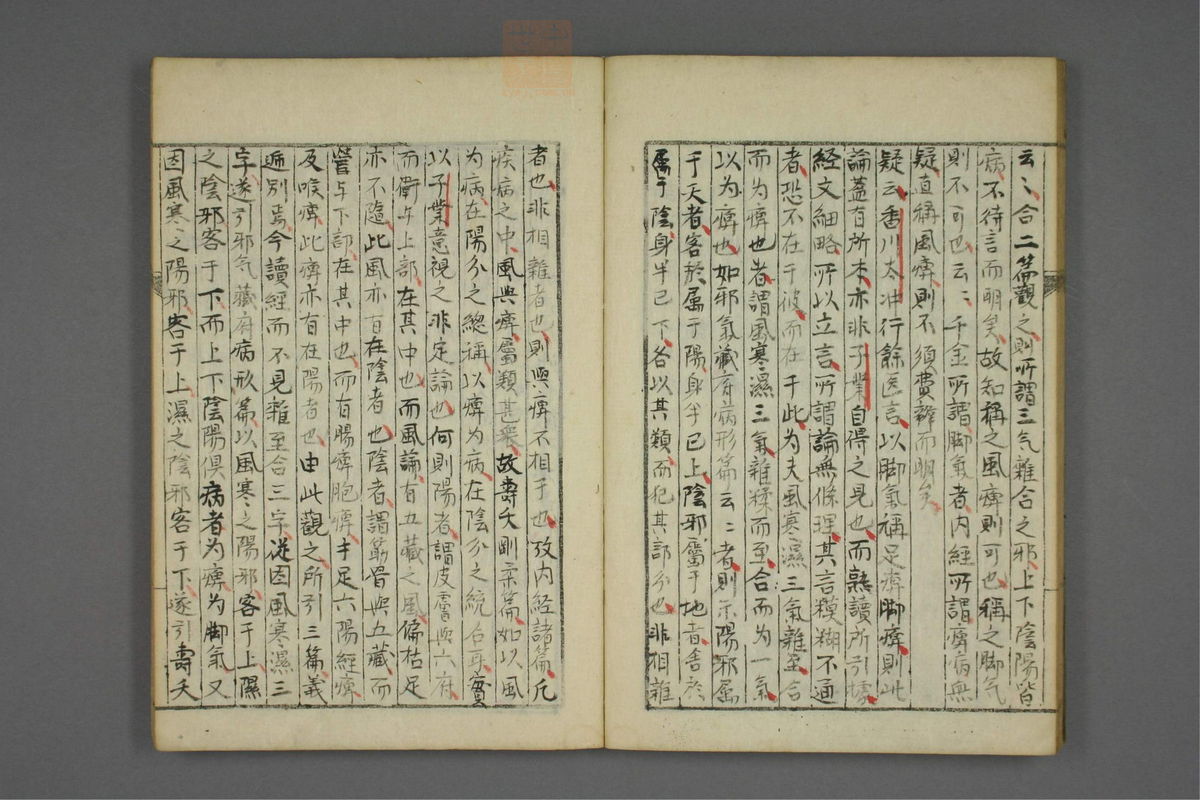 云〻合二篇觀之則所謂三气雜合之邪上下陰陽皆
病不待言而明矣故知稱之風痺則可也稱之脚气
則不可也云〻千金所謂脚氣者内經所謂痺病無
疑直稱風痺則不須費辭而明矣
疑云香川太冲行餘医言以脚氣稱足痺脚痺則此
論蓋有所本亦非子業自得之見也而熟讀所引據
経文細略所以立言所謂論無條理其言糢糊不通
者恐不在于彼而在于此為夫風寒濕三氣雜至合
而為痺也者謂風寒濕三氣雜糅而至合而為一氣
以為痺也如邪氣藏府病形篇云〻者則示陽邪属
于天者客於属于陽身半已上陰邪屬于地者舍於
属于陰身半已下各以其類而犯其部分也非相雜
者也非相雜者也則與痺不相于也攷内経諸篇凡
疾病之中風與痺屬類甚衆故壽夭剛柔篇如以風
为病在陽分之總稱以痺为病在陰分之統名耳實
以子業意視之非定論也何則陽者謂皮膚與六府
而衛与上部在其中也而風論有五藏之風偏枯足
亦不隨此風亦有在陰者也陰者謂筋骨與五藏而
營与下部在其中也而有腸痺胞痺手足六陽経痺
及喉痺此痺亦有在陽者也由此觀之所引三篇義
逈別焉今讀經而不見雜至合三字従因風寒濕三
字遂引邪气藏府病形篇以風寒之陽邪客于上濕
之陰邪客于下而上下陰陽俱病者为痺为脚气又
因風寒之陽邪客于上濕之陰邪客于下遂引壽夭